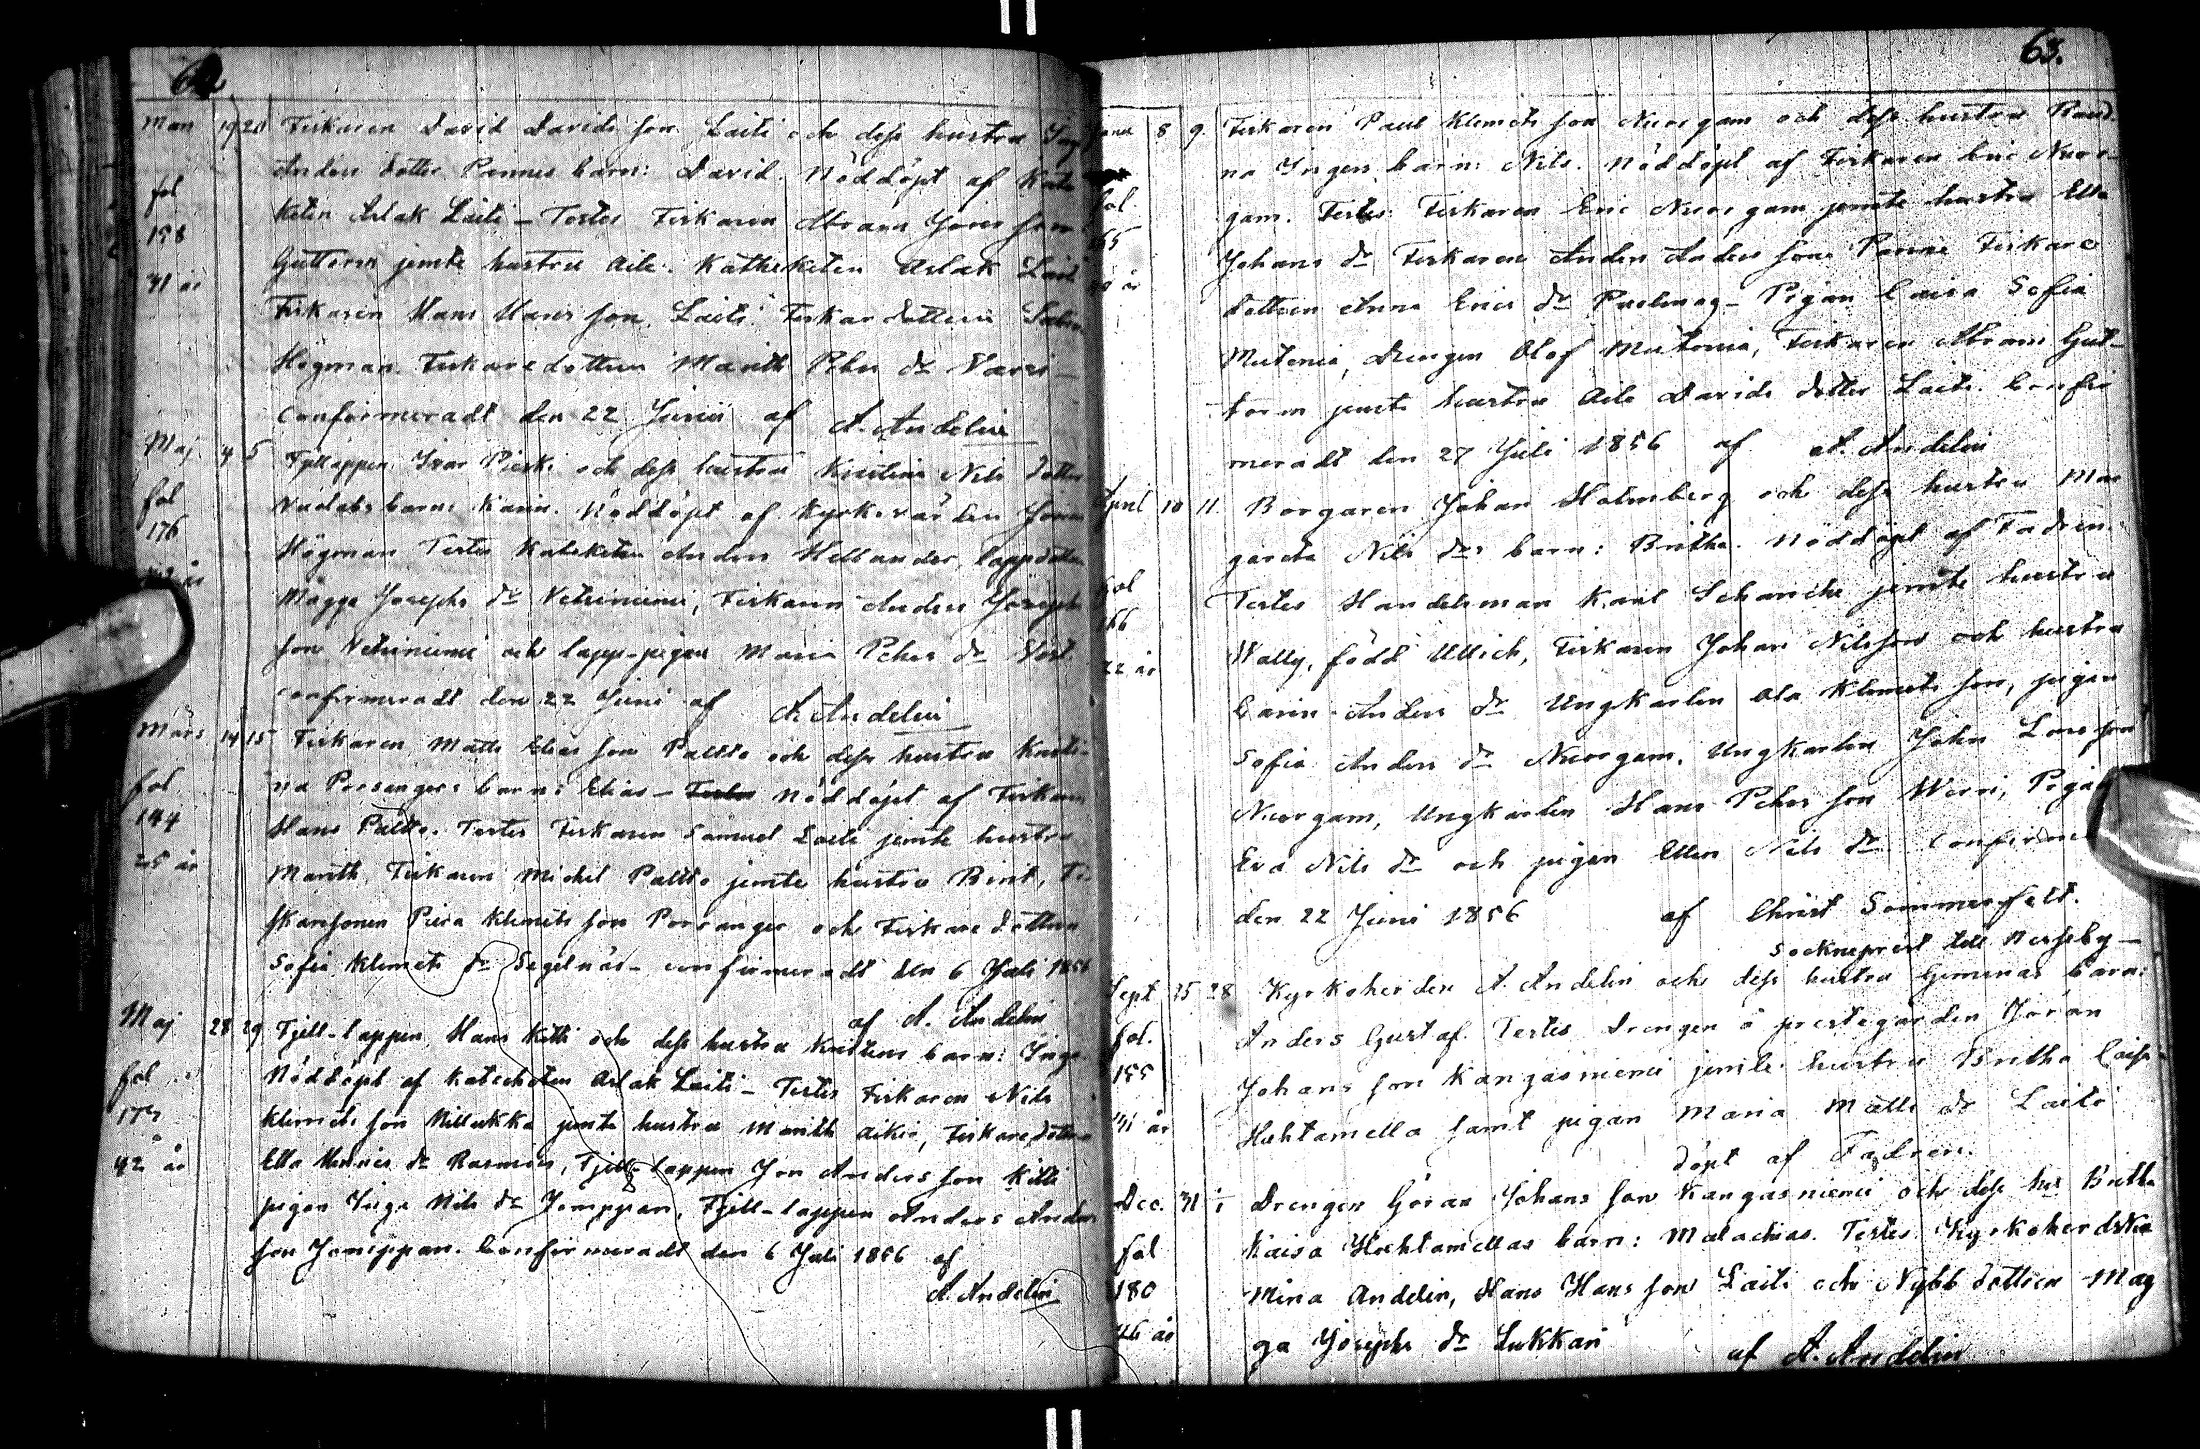 62
Mars 19 20 Fiskaren David Davids son Laiti och dess hustru Inga
Anders dotter Pennes barn: David. Nöddöpt af Kate
fol
keten Aslak Laiti – Testes Fiskaren Abram Jons son
158
Guttorm jemte hustru Aile. Katheketen Aslak Laiti
41 år
Fiskaren Hans Hans son Laiti. Fiskar dottern
Högman Fiskaredottren Marith Pehrs dr
Confirmeradt den 22 Junii af A. Andelin
Maj 4 5 Fjellappen Ivar Pieski och dess hustru Kristina Nils dotter
fol
barn: Karin. Nöddöpt af Kyrkovärden
176
Högman Testes Kateketen Anders Hellander, lappdottern
Magga Josephs dr Vetsiniemi, Fiskaren Anders Josephs
son Vetsiniemi och lapp-pigan Maria Pehrs dr
confirmeradt den 22 Juni af A. Andelin
Mars 14 15 Fiskaren Matts Elias son Paltto och dess hustru Kristi-
na Porsangers barn: Elias – Testes Nöddöpt af Fiskaren
fol
144
Hans Paltto. Testes Fiskaren Samuel Laiti jemte hustru
25 år
Marith, Fiskaren Michel Paltto jemte hustru Birit, Fi-
skarsonen Piera Klemets son Porsanger och Fiskare dottren
Sofia Klemets dr Segelnäs – confirmeradt den 6 Juli 1856
af A. Andelin
Maj 28 29 Fjell-lappen Hans Kitti och dess hustru Kristins barn: Inga
fol
Nöddöpt af Katecheten Aslak Laiti – Testes Fiskaren Nils
173
Klemets son Nillukka jemte hustru Marith Aikio, Fiskaredottren
42 år
Ella Henrics dr Rasmus, Fjell-lappen Jon Anders son Kitti
pigan Inga Nils dr Jomppan, Fjell-lappen Anders Anders
son Jomppan. Confirmeradt den 6 Juli 1856 af
A. Andelin
63.
8 9. Fiskaren Paul Klemets son Nuorgam och dess hustru Raud
na Ingers barn: Nils. Nöddöpt af Fiskaren Eric Nuor-
fol.
gam. Testes: Fiskaren Eric Nuorgam jemte hustru Ella
Johans dr Fiskaren Anders Anders son Penne Fiskare
dottren Anna Erics dr – Pigan Caisa Sofia
Mutenia, Drengen Olof Mutenia, Fiskaren Abram Gut-
torm jemte hustru Aile Davids dotter Laiti. Confir
meradt den 27 Juli 1856 af A. Andelin
April 10 11. Borgaren Johan Holmberg och dess hustru Mar
gareta Nils drs barn: Britha. Nöddöpt af Fadren.
fol
Testes Handelsman Karl Schancke jemte hustru
166
Wally, född Ullich, Fiskaren Johan Nilsson och hustru
22 år
Carin Anders dr Ungkarlen Ola Klemets son, pigan
Sofia Anders dr Nuorgam, Ungkarlen John Lars son
Nuorgam, Ungkarlen Hans Pehrs son Weri, Pigan
Eva Nils dr och pigan Ellen Nils dr Confirme
den 22 Juni 1856 af Christ Sommerfelt.
Sockneprest till Nessby –
Sept 25 28 Kyrkoherden A. Andelin och dess hustru Geminas barn:
fol.
Anders Gustaf. Testes Drengen å prestegården Göran
155
Johans son Kangasniemi jemte hustru Britha Caisa
41 år
Huhtamella samt pigan Maria Matts dr Laiti
döpt af Fadren.
Dec. 31 1 Drengen Göran Johans son Kangasniemi och dess hu Britha
fol
Kaisa Huhtamellas barn: Malachias. Testes Kyrkoherdskan
180
Mina Andelin, Hans Hans son Laiti och Nybb dottren Mag
26 år
ga Josephs dr Lukkari
af A. Andelin